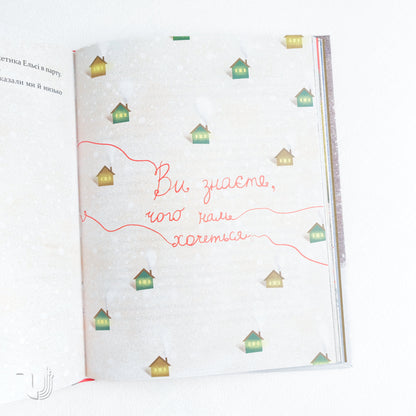 етика Ельсі в парту.
казали ми й низько
Ви знаєте,
чого нам
хочеться...